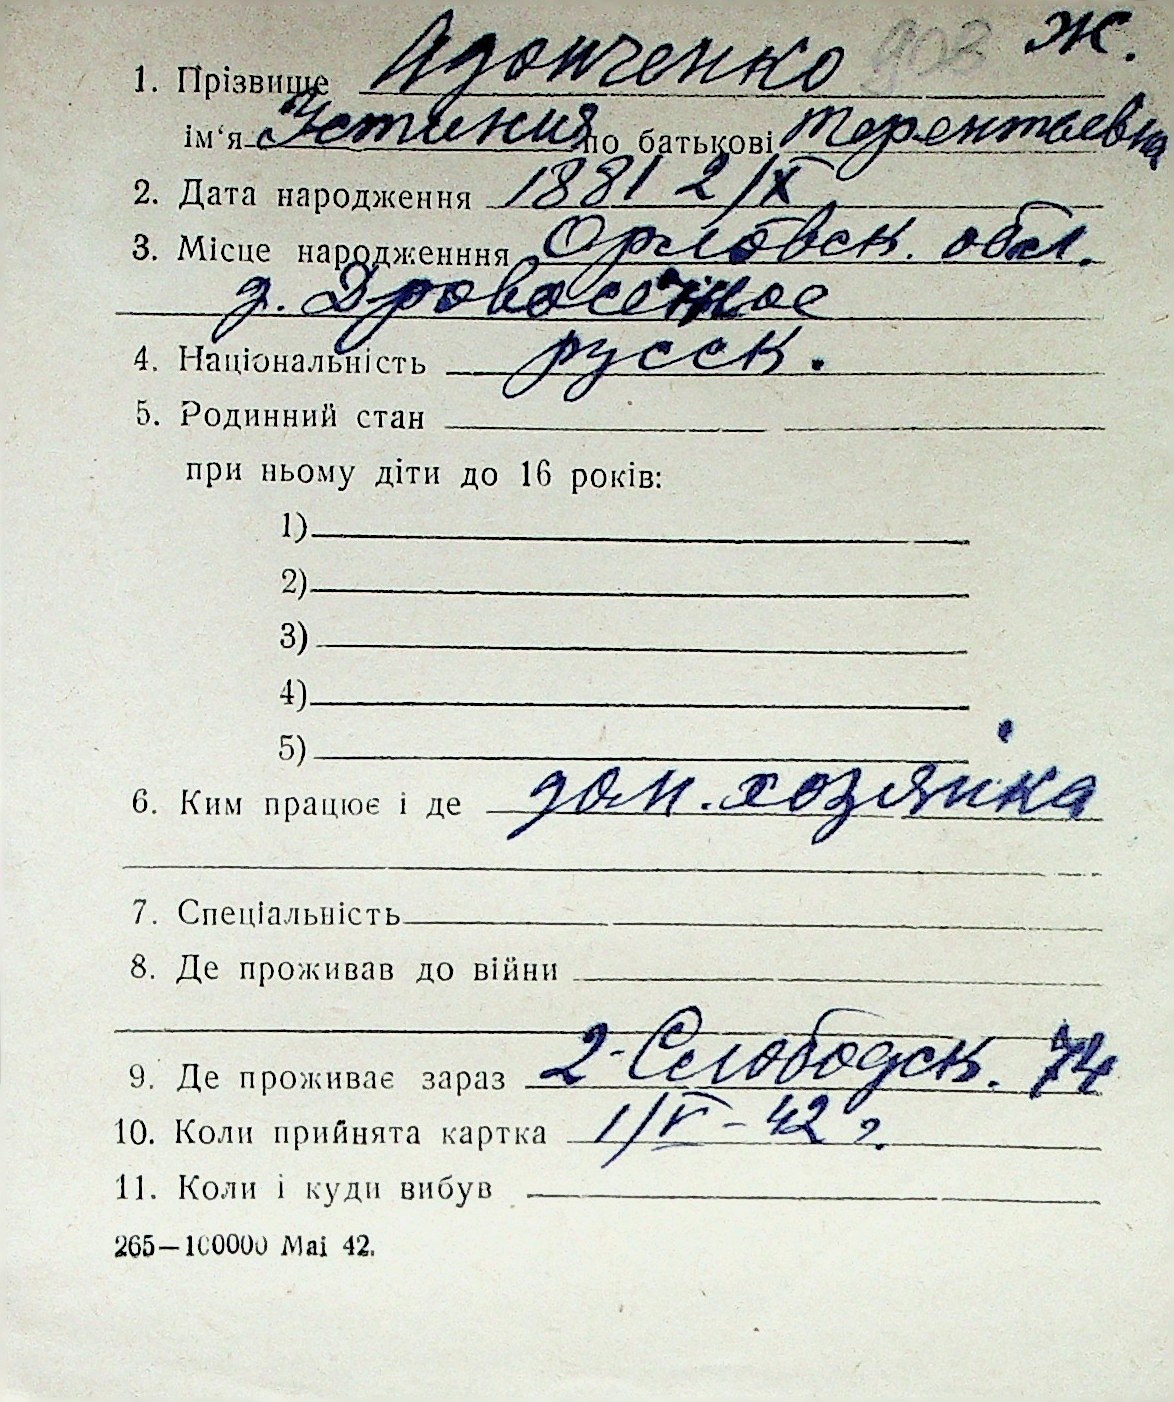 903 Ж.
1. Прізвище Адонченко
ім‘я Устиния по батькові Терентьевна
2. Дата народження 1881 2/X
3. Місце народженння Орловск. обл.
д. Дровосечное
4. Національність русск.
5. Родинний стан
при ньому діти до 16 років:
1)
2)
3)
4)
5)
6. Ким працює і де дом. хозяйка
7. Спеціальність
8. Де проживав до війни
9. Де проживає зараз 2-Слободск. 74
10. Коли прийнята картка 1/V-42 г.
11. Коли і куди вибув
265—100000 Mai 42.